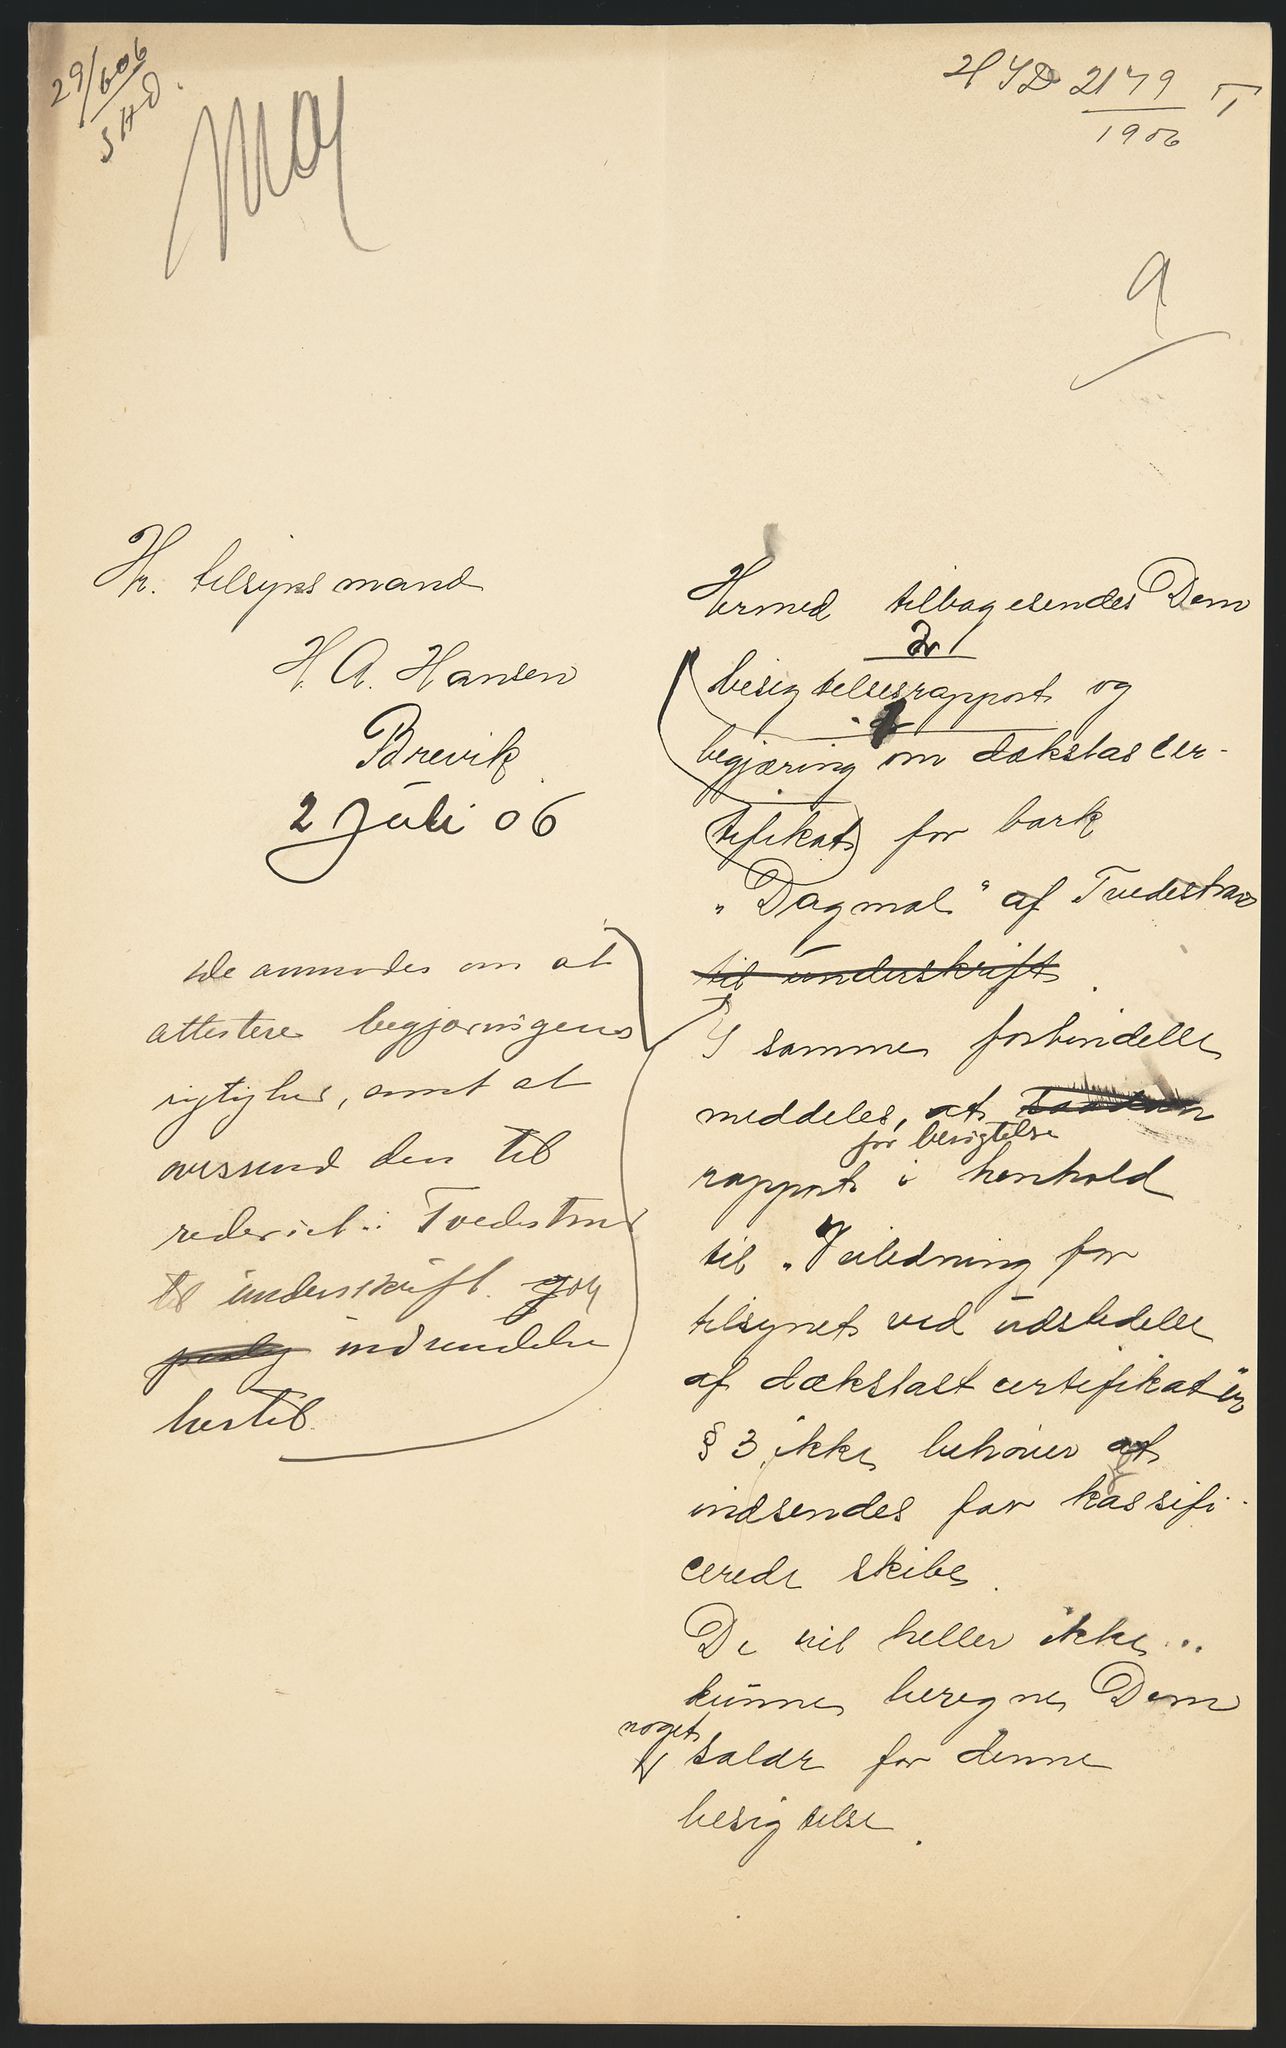 29/6 06
SHD.
HSD 2179 T
1906
Hr. tilsynsmand
H. A. Hansen
Brevik
2 Juli 06
De anmodes om at
attestere begjæringens
rigtighed, samt at
oversende den til
rederiet i Tvedestrand
til underskrift og
indsendelse
hertil.
Hermed tilbagesendes Dem
besigtelsesrapport og
begjæring om dækslastcer-
tifikat for bark
„Dagmar“ af Tvedestrand
til underskrift.
I samme forbindelse
meddeles, at
for besigtelse
rapport i henhold
til „Veiledning for
tilsynet ved udstedelse
af dækslastcertifikater“
§ 3 ikke behøver at
indsendes for klassifi-
cerede skibe.
De vil heller ikke
kunne beregne Dem
noget
salær for denne
besigtelse.